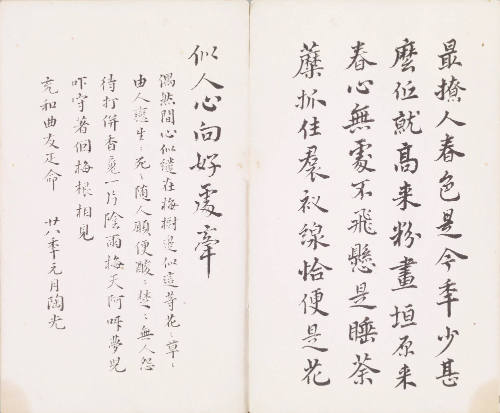 最撩人春色是今年少甚
麼低就高来粉畫垣原来
春心無處不飛懸是睡荼
蘼抓住裙衩線恰便是花
似人心向好處牽
偶然間心似繾在梅樹邊似這等花〻草〻
由人戀生〻死〻隨人願便酸〻楚〻無人怨
待打併香魂一片陰雨梅天阿呀夢児
吓守著個梅根相見
充和曲友疋命 廿八年元月陶光